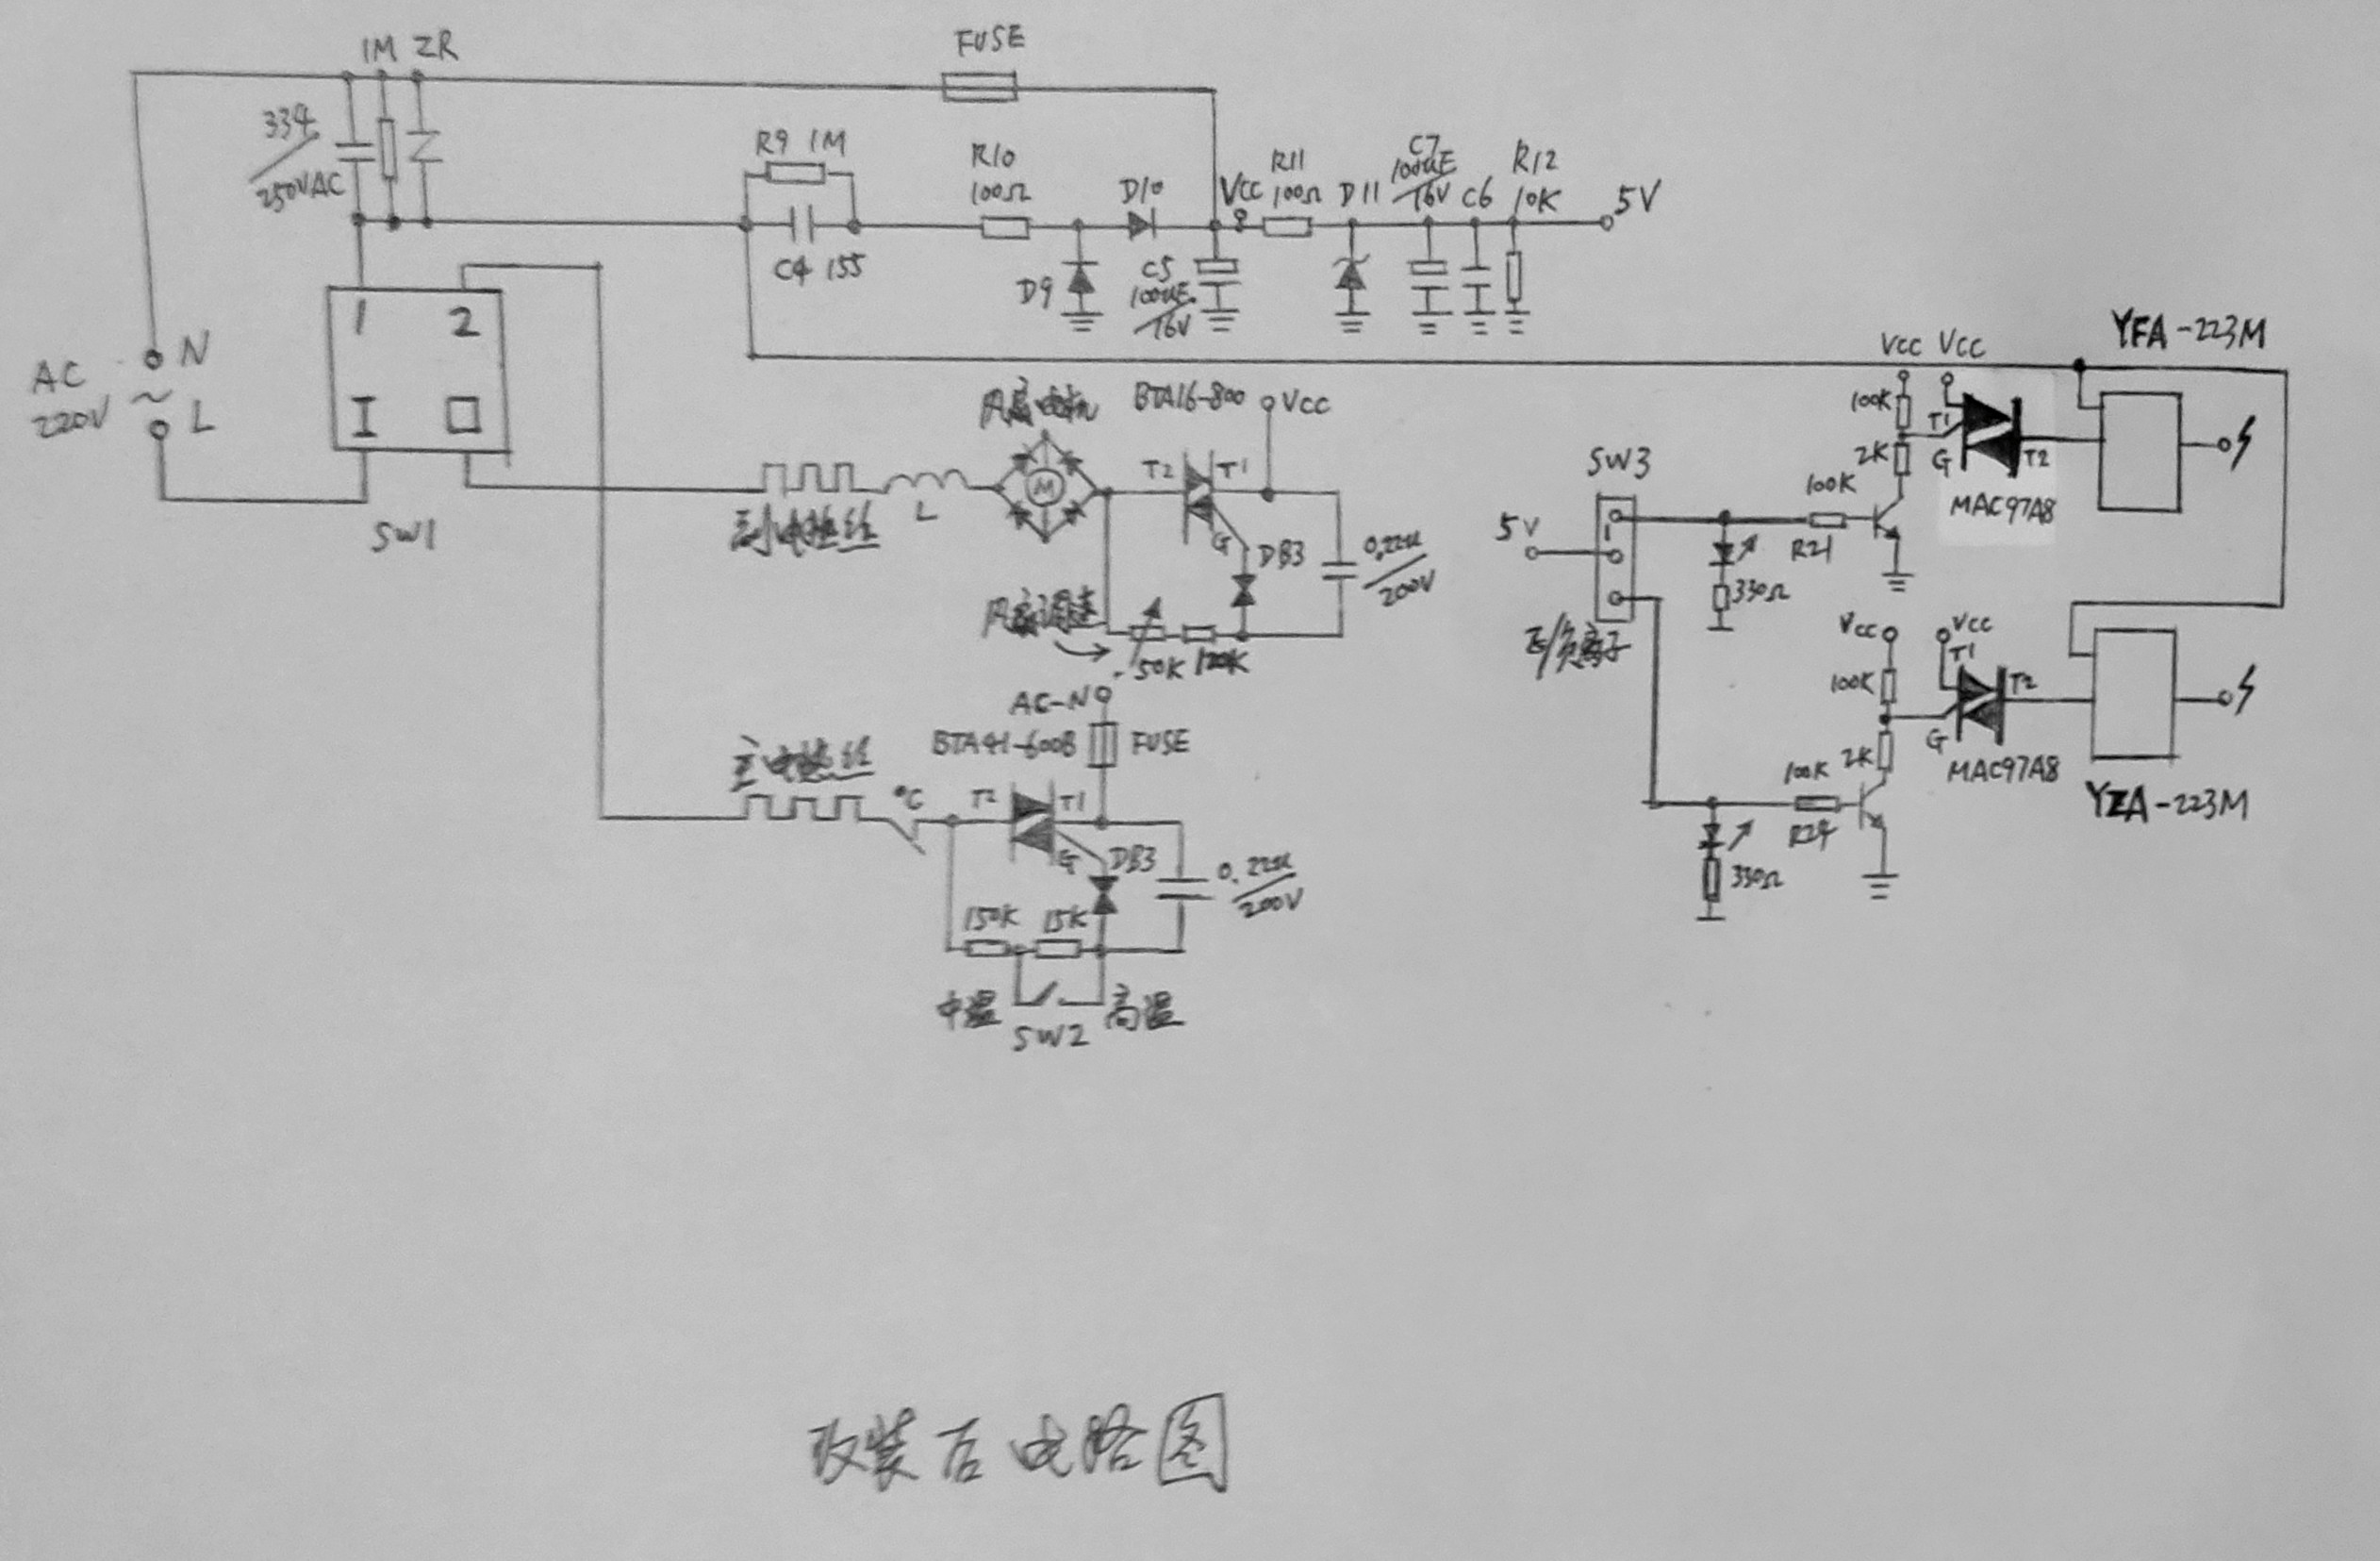 1M ZR
FUSE
334/250VAC
R9 1M
C4 155
R10
100Ω
D9
D10
C5
100uF/16V
Vcc
R11
100Ω
D11
C7
100uF/16V
C6
R12
10K
5V
AC
220V
N
L
1 2
I
SW1
副电热丝
L
风扇电机
M
BTA16-800
Vcc
T2 T1
G
DB3
0.22u/200V
风扇调速
50K
主电热丝
°C
AC-N
BTA41-600B
FUSE
T2 T1
G
DB3
0.22u/200V
150K 15K
中温 高温
SW2
SW3
5V
正/负离子
330Ω
100K
R21
Vcc Vcc
100K
2K
T1
G
T2
MAC97A8
YFA-223M
330Ω
100K
R24
Vcc Vcc
100K
2K
T1
G
T2
MAC97A8
YZA-223M
改装后电路图